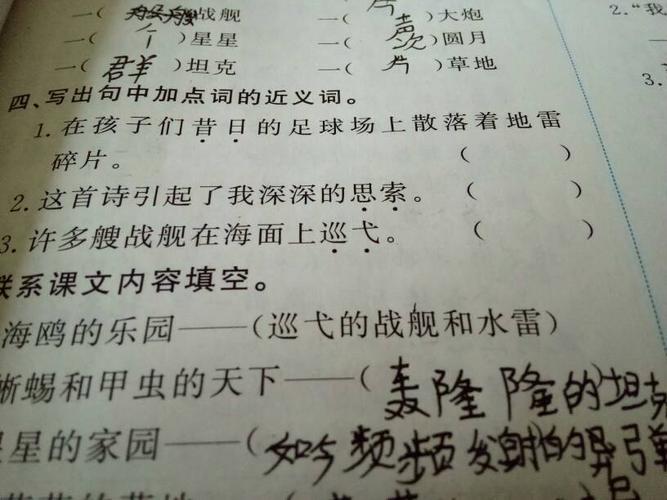 一(艘艘)战舰 一(片)大炮 2.“我
一(个)星星 一(声次)圆月
一(群)坦克 一(片)草地 3.
四、写出句中加点词的近义词。
1.在孩子们昔日的足球场上散落着地雷
碎片。 ( )
2.这首诗引起了我深深的思索。 ( )
3.许多艘战舰在海面上巡弋。 ( )
联系课文内容填空。
海鸥的乐园——(巡弋的战舰和水雷)
蜥蜴和甲虫的天下——(轰隆隆的)坦克
星星的家园——(如今频频发射的导弹